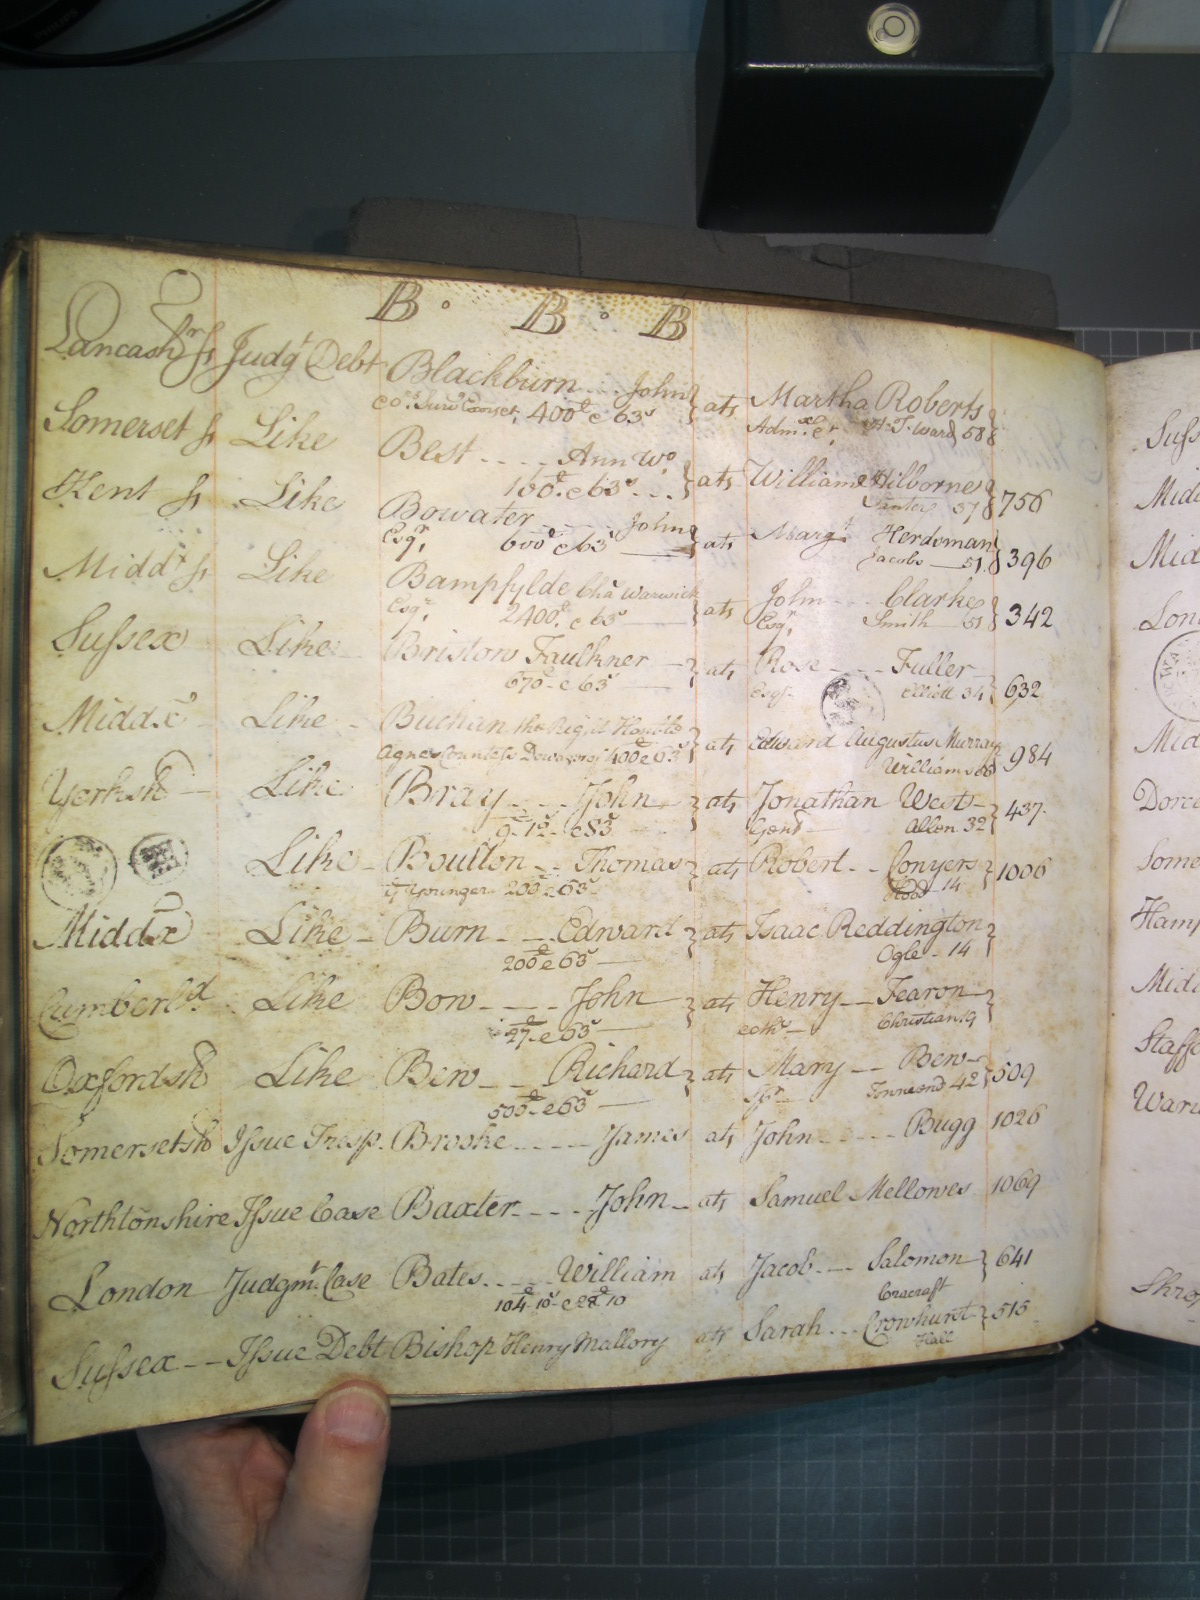 B. B. B
Lancashr ss Judgt Debt Blackburn John } ats Martha Roberts
400£ & 63s Ward 58
Somerset ss Like Best Ann Wo. } ats William Hilborne } 756
100£ & 63s 57
Kent ss Like Bowater John } ats Margt Herdsman } 396
Esqr. 600£ & 63s Jacobs 51
Middx ss Like Bampfylde Chas Warwick } ats John Clarke } 342
Esqr 2400£ & 63s Esqr. Smith 51
Sussex Like Bristow Faulkner } ats Rose Fuller } 632
670 & 63s Esqr Elliott 34
Middx Like Buchan the Right Honble } ats Edward Augustus Murray } 984
Agnes Countess Dowager of 400£ & 63s Williams
Yorksh Like Bray John } ats Jonathan West } 437
Gent Allen 32
Like Boulton Thomas } ats Robert Conyers } 1006
ye Younger 200£ & 63s Hood 14
Middx Like Burn Edward } ats Isaac Reddington }
200£ & 63s Ogle 14
Cumberld Like Bow John } ats Henry Fearon }
27£ & 63s Christian 19
Oxfordsh Like Bew Richard } ats Mary Bew } 509
500£ & 63s Spr Townsend 42
Somersetsh Issue Tresp. Brooke James ats John Bugg 1026
Northtonshire Issue Case Baxter John ats Samuel Mellowes 1069
London Judgmt. Case Bates William ats Jacob Salomon } 641
104£-10s & 28£ 10 Cracraft
Sussex Issue Debt Bishop Henry Mallory ats Sarah Crowhurst } 515
Hall